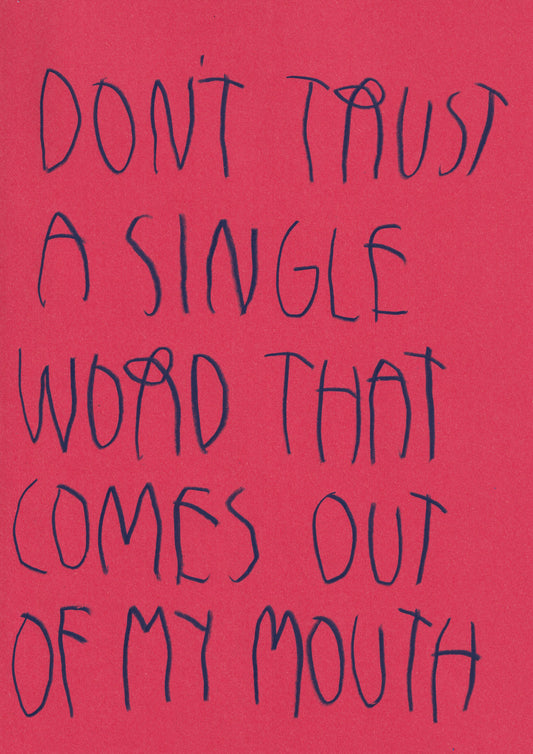 DON'T TRUST
A SINGLE
WORD THAT
COMES OUT
OF MY MOUTH